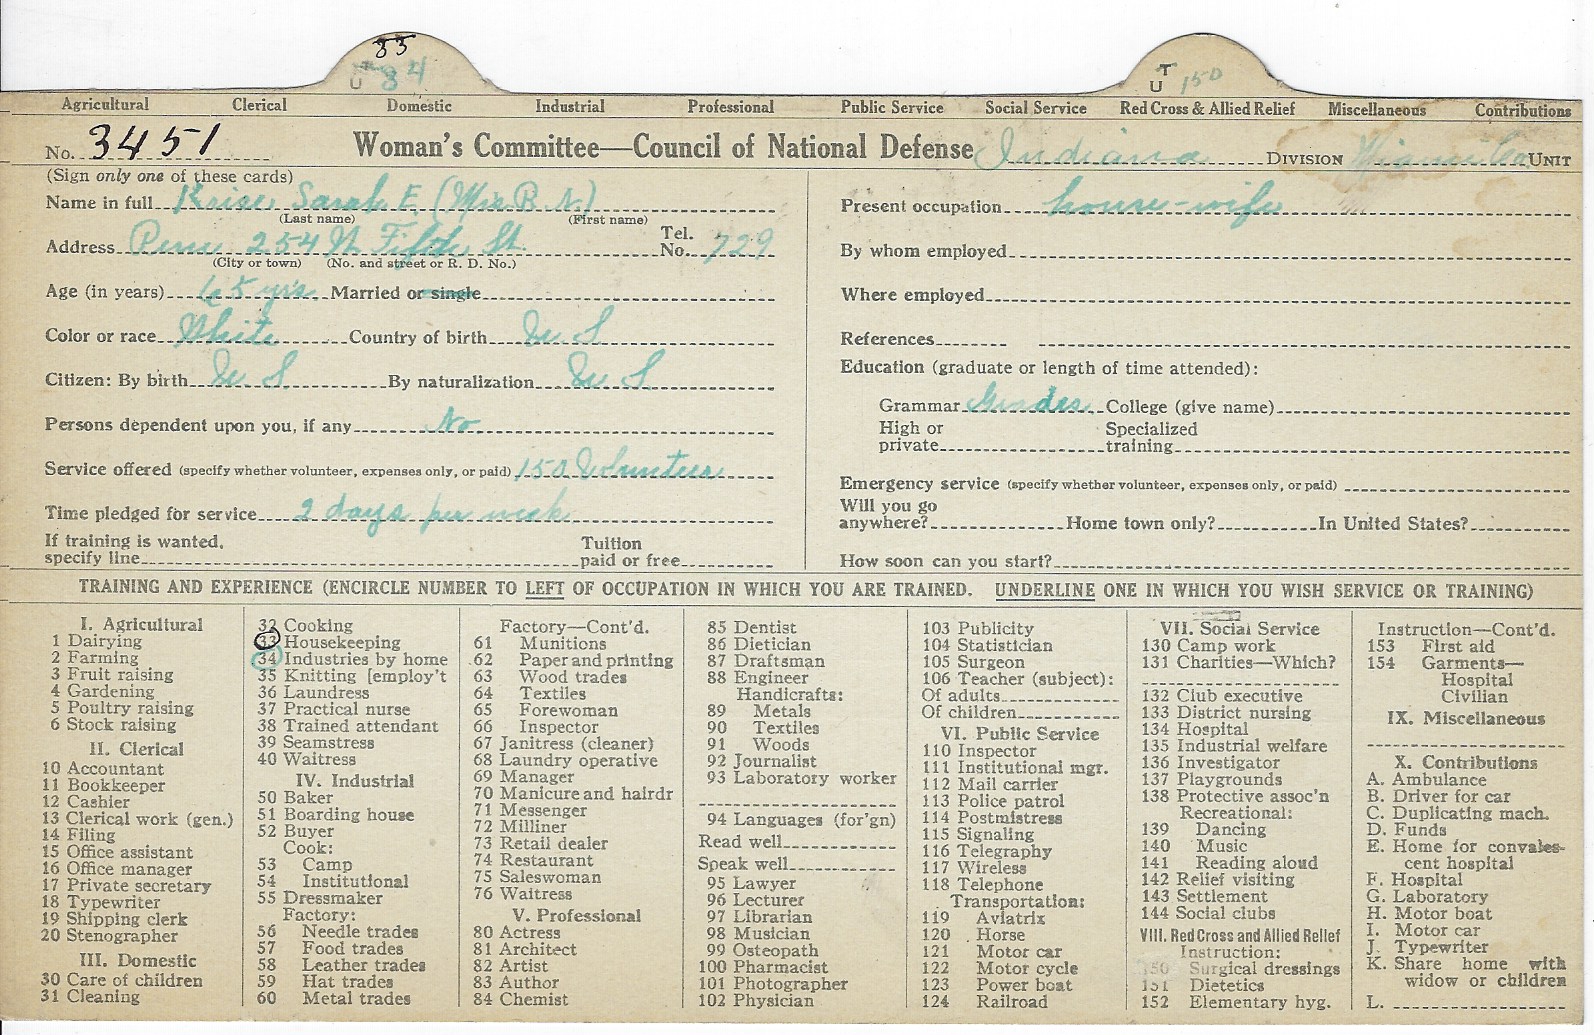 33
U T 34
U T 150
Agricultural Clerical Domestic Industrial Professional Public Service Social Service Red Cross & Allied Relief Miscellaneous Contributions
No. 3451 Woman's Committee—Council of National Defense Indiana DIVISION Miami Co UNIT
(Sign only one of these cards)
Name in full Kaise, Sarah E. (Mrs B. N.)
(Last name) (First name)
Address Peru 254 W. Fifth St. Tel. No. 729
(City or town) (No. and street or R. D. No.)
Age (in years) 65 yrs Married or single
Color or race White Country of birth U S
Citizen: By birth U S By naturalization U S
Persons dependent upon you, if any No
Service offered (specify whether volunteer, expenses only, or paid) 150 Volunteer
Time pledged for service 2 days per week
If training is wanted, specify line Tuition paid or free
Present occupation house-wife
By whom employed
Where employed
References
Education (graduate or length of time attended):
Grammar Grades College (give name)
High or private Specialized training
Emergency service (specify whether volunteer, expenses only, or paid)
Will you go anywhere? Home town only? In United States?
How soon can you start?
TRAINING AND EXPERIENCE (ENCIRCLE NUMBER TO LEFT OF OCCUPATION IN WHICH YOU ARE TRAINED. UNDERLINE ONE IN WHICH YOU WISH SERVICE OR TRAINING)
I. Agricultural
1 Dairying
2 Farming
3 Fruit raising
4 Gardening
5 Poultry raising
6 Stock raising
II. Clerical
10 Accountant
11 Bookkeeper
12 Cashier
13 Clerical work (gen.)
14 Filing
15 Office assistant
16 Office manager
17 Private secretary
18 Typewriter
19 Shipping clerk
20 Stenographer
III. Domestic
30 Care of children
31 Cleaning
32 Cooking
33 Housekeeping
34 Industries by home
35 Knitting [employ't
36 Laundress
37 Practical nurse
38 Trained attendant
39 Seamstress
40 Waitress
IV. Industrial
50 Baker
51 Boarding house
52 Buyer
Cook:
53 Camp
54 Institutional
55 Dressmaker
Factory:
56 Needle trades
57 Food trades
58 Leather trades
59 Hat trades
60 Metal trades
Factory—Cont'd.
61 Munitions
62 Paper and printing
63 Wood trades
64 Textiles
65 Forewoman
66 Inspector
67 Janitress (cleaner)
68 Laundry operative
69 Manager
70 Manicure and hairdr
71 Messenger
72 Milliner
73 Retail dealer
74 Restaurant
75 Saleswoman
76 Waitress
V. Professional
80 Actress
81 Architect
82 Artist
83 Author
84 Chemist
85 Dentist
86 Dietician
87 Draftsman
88 Engineer
Handicrafts:
89 Metals
90 Textiles
91 Woods
92 Journalist
93 Laboratory worker
94 Languages (for'gn)
Read well
Speak well
95 Lawyer
96 Lecturer
97 Librarian
98 Musician
99 Osteopath
100 Pharmacist
101 Photographer
102 Physician
103 Publicity
104 Statistician
105 Surgeon
106 Teacher (subject):
Of adults
Of children
VI. Public Service
110 Inspector
111 Institutional mgr.
112 Mail carrier
113 Police patrol
114 Postmistress
115 Signaling
116 Telegraphy
117 Wireless
118 Telephone
Transportation:
119 Aviatrix
120 Horse
121 Motor car
122 Motor cycle
123 Power boat
124 Railroad
VII. Social Service
130 Camp work
131 Charities—Which?
132 Club executive
133 District nursing
134 Hospital
135 Industrial welfare
136 Investigator
137 Playgrounds
138 Protective assoc'n
Recreational:
139 Dancing
140 Music
141 Reading aloud
142 Relief visiting
143 Settlement
144 Social clubs
VIII. Red Cross and Allied Relief
Instruction:
150 Surgical dressings
151 Dietetics
152 Elementary hyg.
Instruction—Cont'd.
153 First aid
154 Garments—
Hospital
Civilian
IX. Miscellaneous
X. Contributions
A. Ambulance
B. Driver for car
C. Duplicating mach.
D. Funds
E. Home for convales-
cent hospital
F. Hospital
G. Laboratory
H. Motor boat
I. Motor car
J. Typewriter
K. Share home with
widow or children
L.